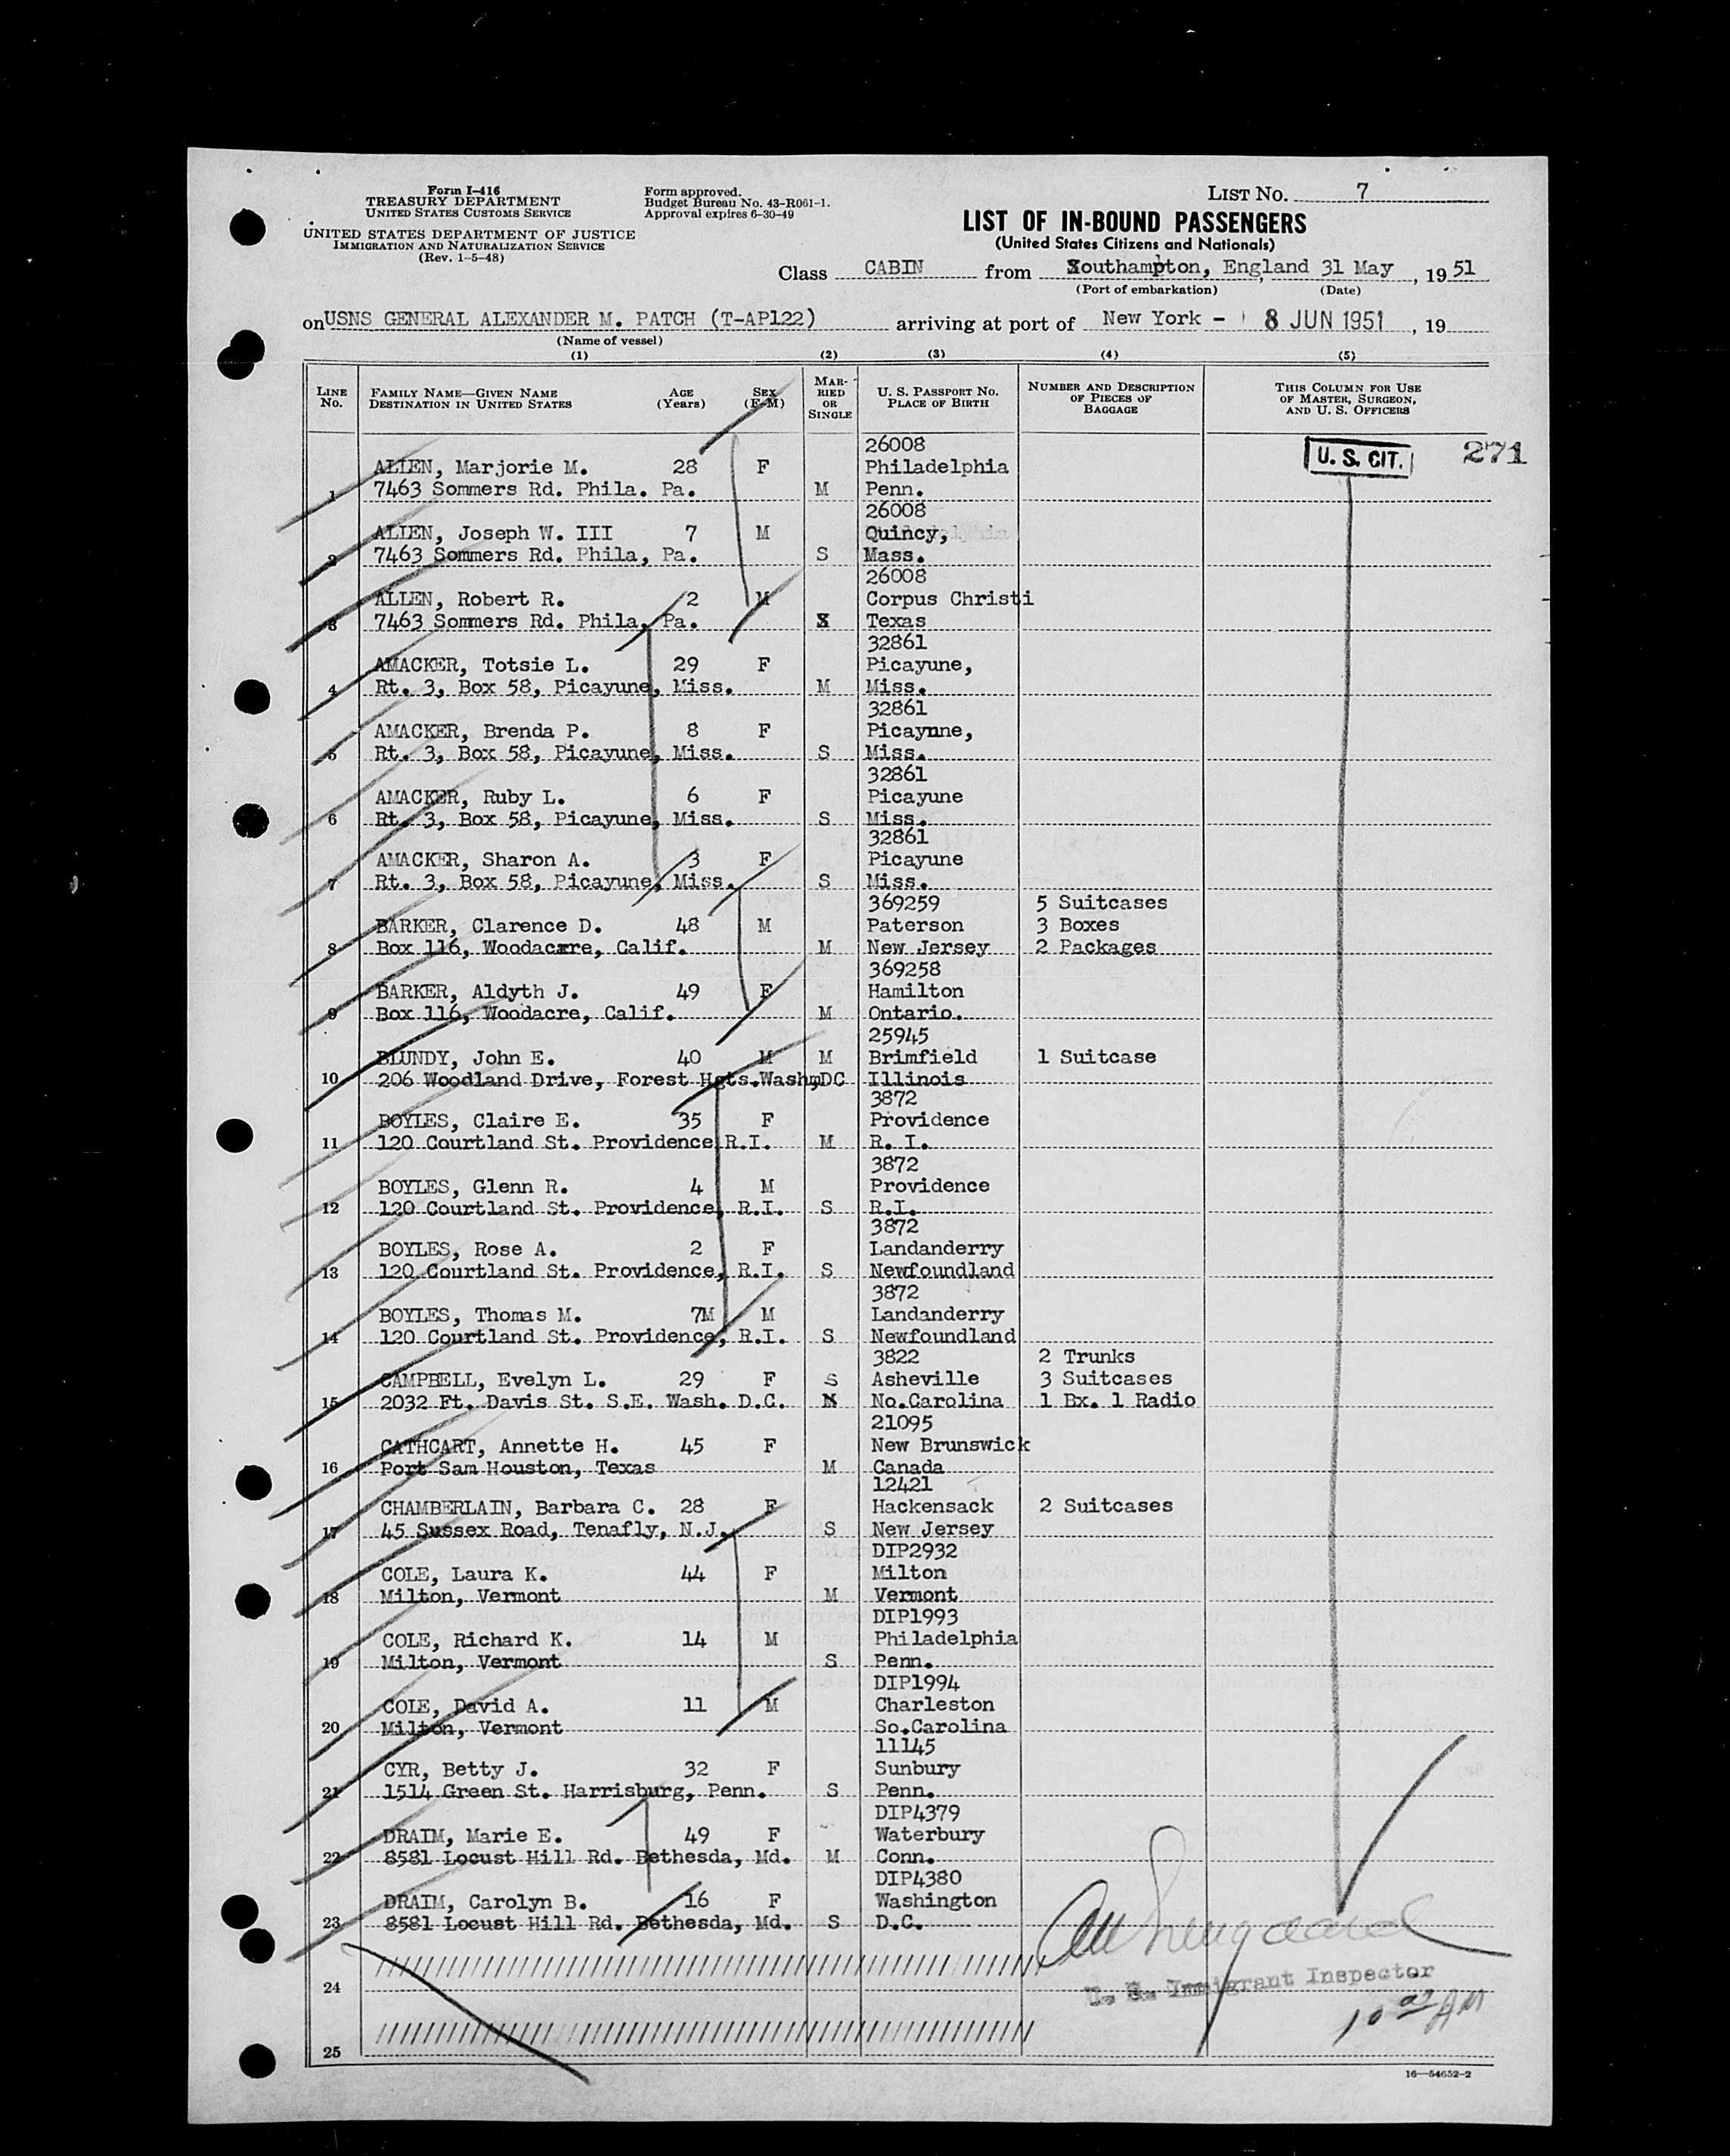 Form I-416
TREASURY DEPARTMENT
UNITED STATES CUSTOMS SERVICE
UNITED STATES DEPARTMENT OF JUSTICE
IMMIGRATION AND NATURALIZATION SERVICE
(Rev. 1-5-48)
Form approved.
Budget Bureau No. 43-R061-1.
Approval expires 6-30-49
LIST No. 7
LIST OF IN-BOUND PASSENGERS
(United States Citizens and Nationals)
Class CABIN from Southampton, England 31 May, 19 51
(Port of embarkation) (Date)
on USNS GENERAL ALEXANDER M. PATCH (T-AP122) arriving at port of New York - 8 JUN 1951, 19
(Name of vessel)
(1) (2) (3) (4) (5)
LINE No. FAMILY NAME—GIVEN NAME DESTINATION IN UNITED STATES AGE (Years) SEX (F-M) MARRIED OR SINGLE U. S. PASSPORT No. PLACE OF BIRTH NUMBER AND DESCRIPTION OF PIECES OF BAGGAGE THIS COLUMN FOR USE OF MASTER, SURGEON, AND U. S. OFFICERS
26008
U. S. CIT. 271
ALLEN, Marjorie M. 28 F Philadelphia
1 7463 Sommers Rd. Phila. Pa. M Penn.
26008
ALLEN, Joseph W. III 7 M Quincy,
2 7463 Sommers Rd. Phila, Pa. S Mass.
26008
ALLEN, Robert R. 2 M Corpus Christi
3 7463 Sommers Rd. Phila, Pa. Texas
32861
AMACKER, Totsie L. 29 F Picayune,
4 Rt. 3, Box 58, Picayune, Miss. M Miss.
32861
AMACKER, Brenda P. 8 F Picaynne,
5 Rt. 3, Box 58, Picayune, Miss. S Miss.
32861
AMACKER, Ruby L. 6 F Picayune
6 Rt. 3, Box 58, Picayune, Miss. S Miss.
32861
AMACKER, Sharon A. 3 F Picayune
7 Rt. 3, Box 58, Picayune, Miss. S Miss.
369259 5 Suitcases
BARKER, Clarence D. 48 M Paterson 3 Boxes
8 Box 116, Woodacre, Calif. M New Jersey 2 Packages
369258
BARKER, Aldyth J. 49 F Hamilton
9 Box 116, Woodacre, Calif. M Ontario.
25945
BLUNDY, John E. 40 M M Brimfield 1 Suitcase
10 206 Woodland Drive, Forest Hgts.Wash,DC Illinois
3872
BOYLES, Claire E. 35 F Providence
11 120 Courtland St. Providence R.I. M R. I.
3872
BOYLES, Glenn R. 4 M Providence
12 120 Courtland St. Providence, R.I. S R.I.
3872
BOYLES, Rose A. 2 F Landanderry
13 120 Courtland St. Providence, R.I. S Newfoundland
3872
BOYLES, Thomas M. 7M M Landanderry
14 120 Courtland St. Providence, R.I. S Newfoundland
3822 2 Trunks
CAMPBELL, Evelyn L. 29 F S Asheville 3 Suitcases
15 2032 Ft. Davis St. S.E. Wash. D.C. No.Carolina 1 Bx. 1 Radio
21095
CATHCART, Annette H. 45 F New Brunswick
16 Port Sam Houston, Texas M Canada
12421
CHAMBERLAIN, Barbara C. 28 F Hackensack 2 Suitcases
17 45 Sussex Road, Tenafly, N.J. S New Jersey
DIP2932
COLE, Laura K. 44 F Milton
18 Milton, Vermont M Vermont
DIP1993
COLE, Richard K. 14 M Philadelphia
19 Milton, Vermont S Penn.
DIP1994
COLE, David A. 11 M Charleston
20 Milton, Vermont So.Carolina
11145
CYR, Betty J. 32 F Sunbury
21 1514 Green St. Harrisburg, Penn. S Penn.
DIP4379
DRAIM, Marie E. 49 F Waterbury
22 8581 Locust Hill Rd. Bethesda, Md. M Conn.
DIP4380
DRAIM, Carolyn B. 16 F Washington
23 8581 Locust Hill Rd. Bethesda, Md. S D.C.
24 U. S. Immigrant Inspector
10 00 AM
25
16—54652-2